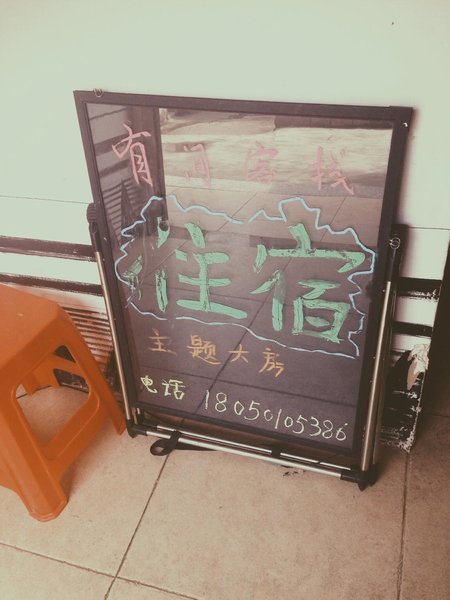 有间客栈
住宿
主题大房
电话 18050105386